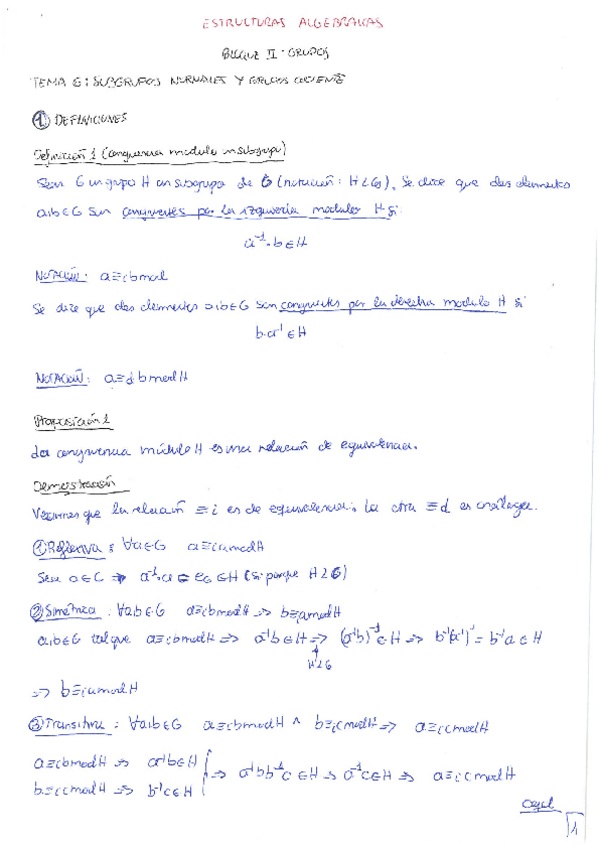 ESTRUCTURAS ALGEBRAICAS
BLOQUE II: GRUPOS
TEMA 6: SUBGRUPOS NORMALES Y GRUPOS COCIENTE
① DEFINICIONES
Definición 1 (congruencia modulo un subgrupo)
Sean G un grupo H un subgrupo de G (notación: H≤G). Se dice que dos elementos
a,b∈G son congruentes por la izquierda modulo H si:
a⁻¹·b∈H
NOTACIÓN: a≡i b mod
Se dice que dos elementos a,b∈G son congruentes por la derecha modulo H si
b·a⁻¹∈H
NOTACIÓN: a≡d b mod H
Proposición 1
La congruencia módulo H es una relación de equivalencia.
Demostración
Veamos que la relación ≡i es de equivalencia; la otra ≡d es análoga.
① Reflexiva: ∀a∈G a≡i a mod H
Sea a∈G ⇒ a⁻¹·a = e_G ∈H (si porque H≤G)
② Simétrica: ∀a,b∈G a≡i b mod H ⇒ b≡i a mod H
a,b∈G tal que a≡i b mod H ⇒ a⁻¹b∈H ⇒ (a⁻¹b)⁻¹∈H ⇒ b⁻¹(a⁻¹)⁻¹ = b⁻¹a∈H
H≤G
⇒ b≡i a mod H
③ Transitiva: ∀a,b∈G a≡i b mod H ∧ b≡i c mod H ⇒ a≡i c mod H
a≡i b mod H ⇒ a⁻¹b∈H
b≡i c mod H ⇒ b⁻¹c∈H
⇒ a⁻¹bb⁻¹c∈H ⇒ a⁻¹c∈H ⇒ a≡i c mod H
1